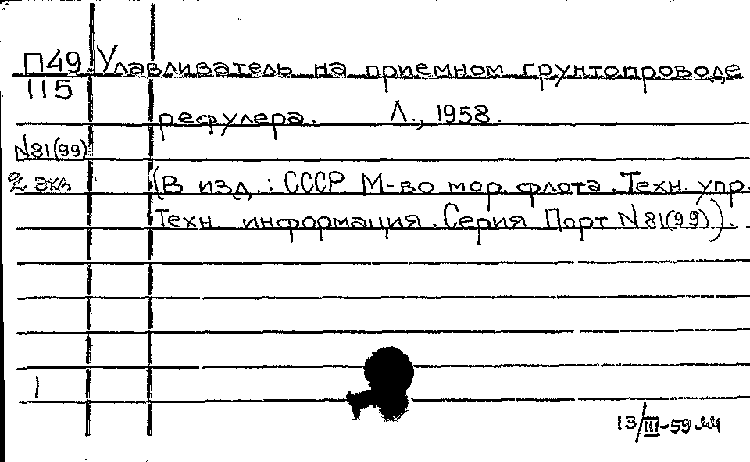 П49 Улавливатель на приемном грунтопроводе
115
рефулера. Л., 1958.
N81(99)
2 экз (В изд.: СССР. М-во мор. флота. Техн. упр.
Техн. информация. Серия Порт N81(99)).
1
13/III-59